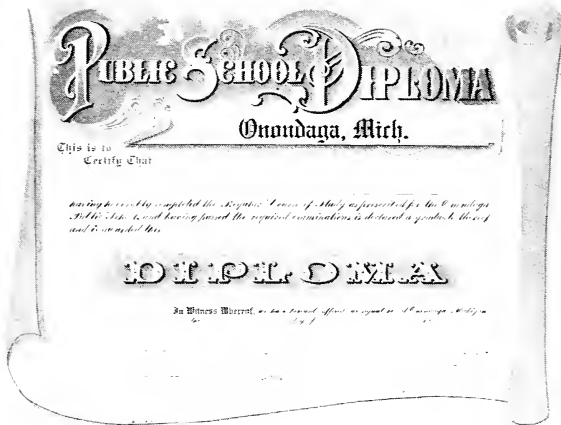 Public School Diploma
Onondaga, Mich.
This is to
Certify That
having honorably completed the Regular Course of Study as prescribed for the Onondaga
Public School, and having passed the required examinations is declared a graduate thereof
and is awarded this
DIPLOMA
In Witness Whereof, we have hereunto affixed our signatures at Onondaga, Michigan